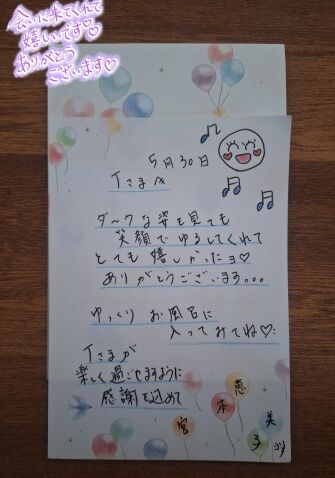 会いに来てくれて
嬉しいです♡
ありがとう
ございます♡
5月30日
Tさまへ
ダークな姿を見ても
笑顔でゆるしてくれて
とても嬉しかったョ♡
ありがとうございます。。。
ゆっくり お風呂に
入ってみてね♡
Tさまが
楽しく過ごせますように
感謝を込めて
恵
木
宮
美